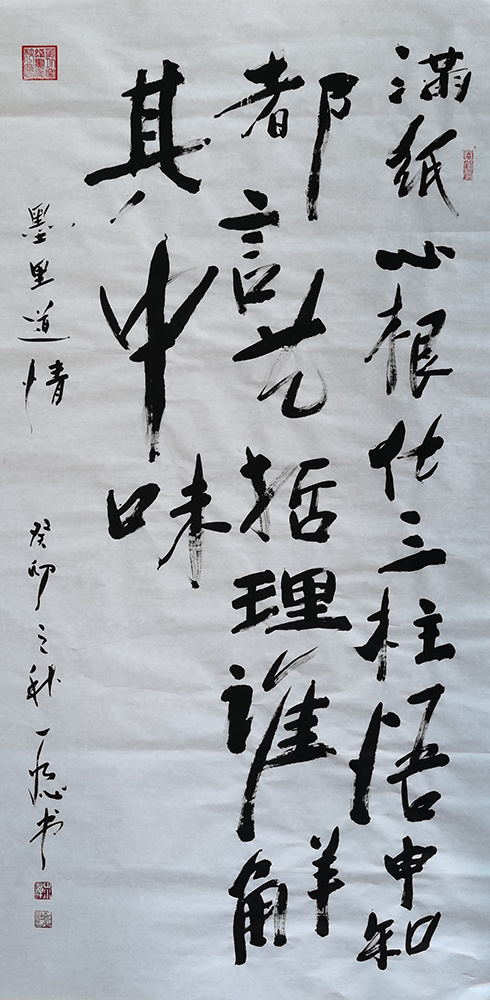 满纸心根化三柱悟申知
都言艺哲理谁解
其中味
墨里道情 癸卯之秋 一 书